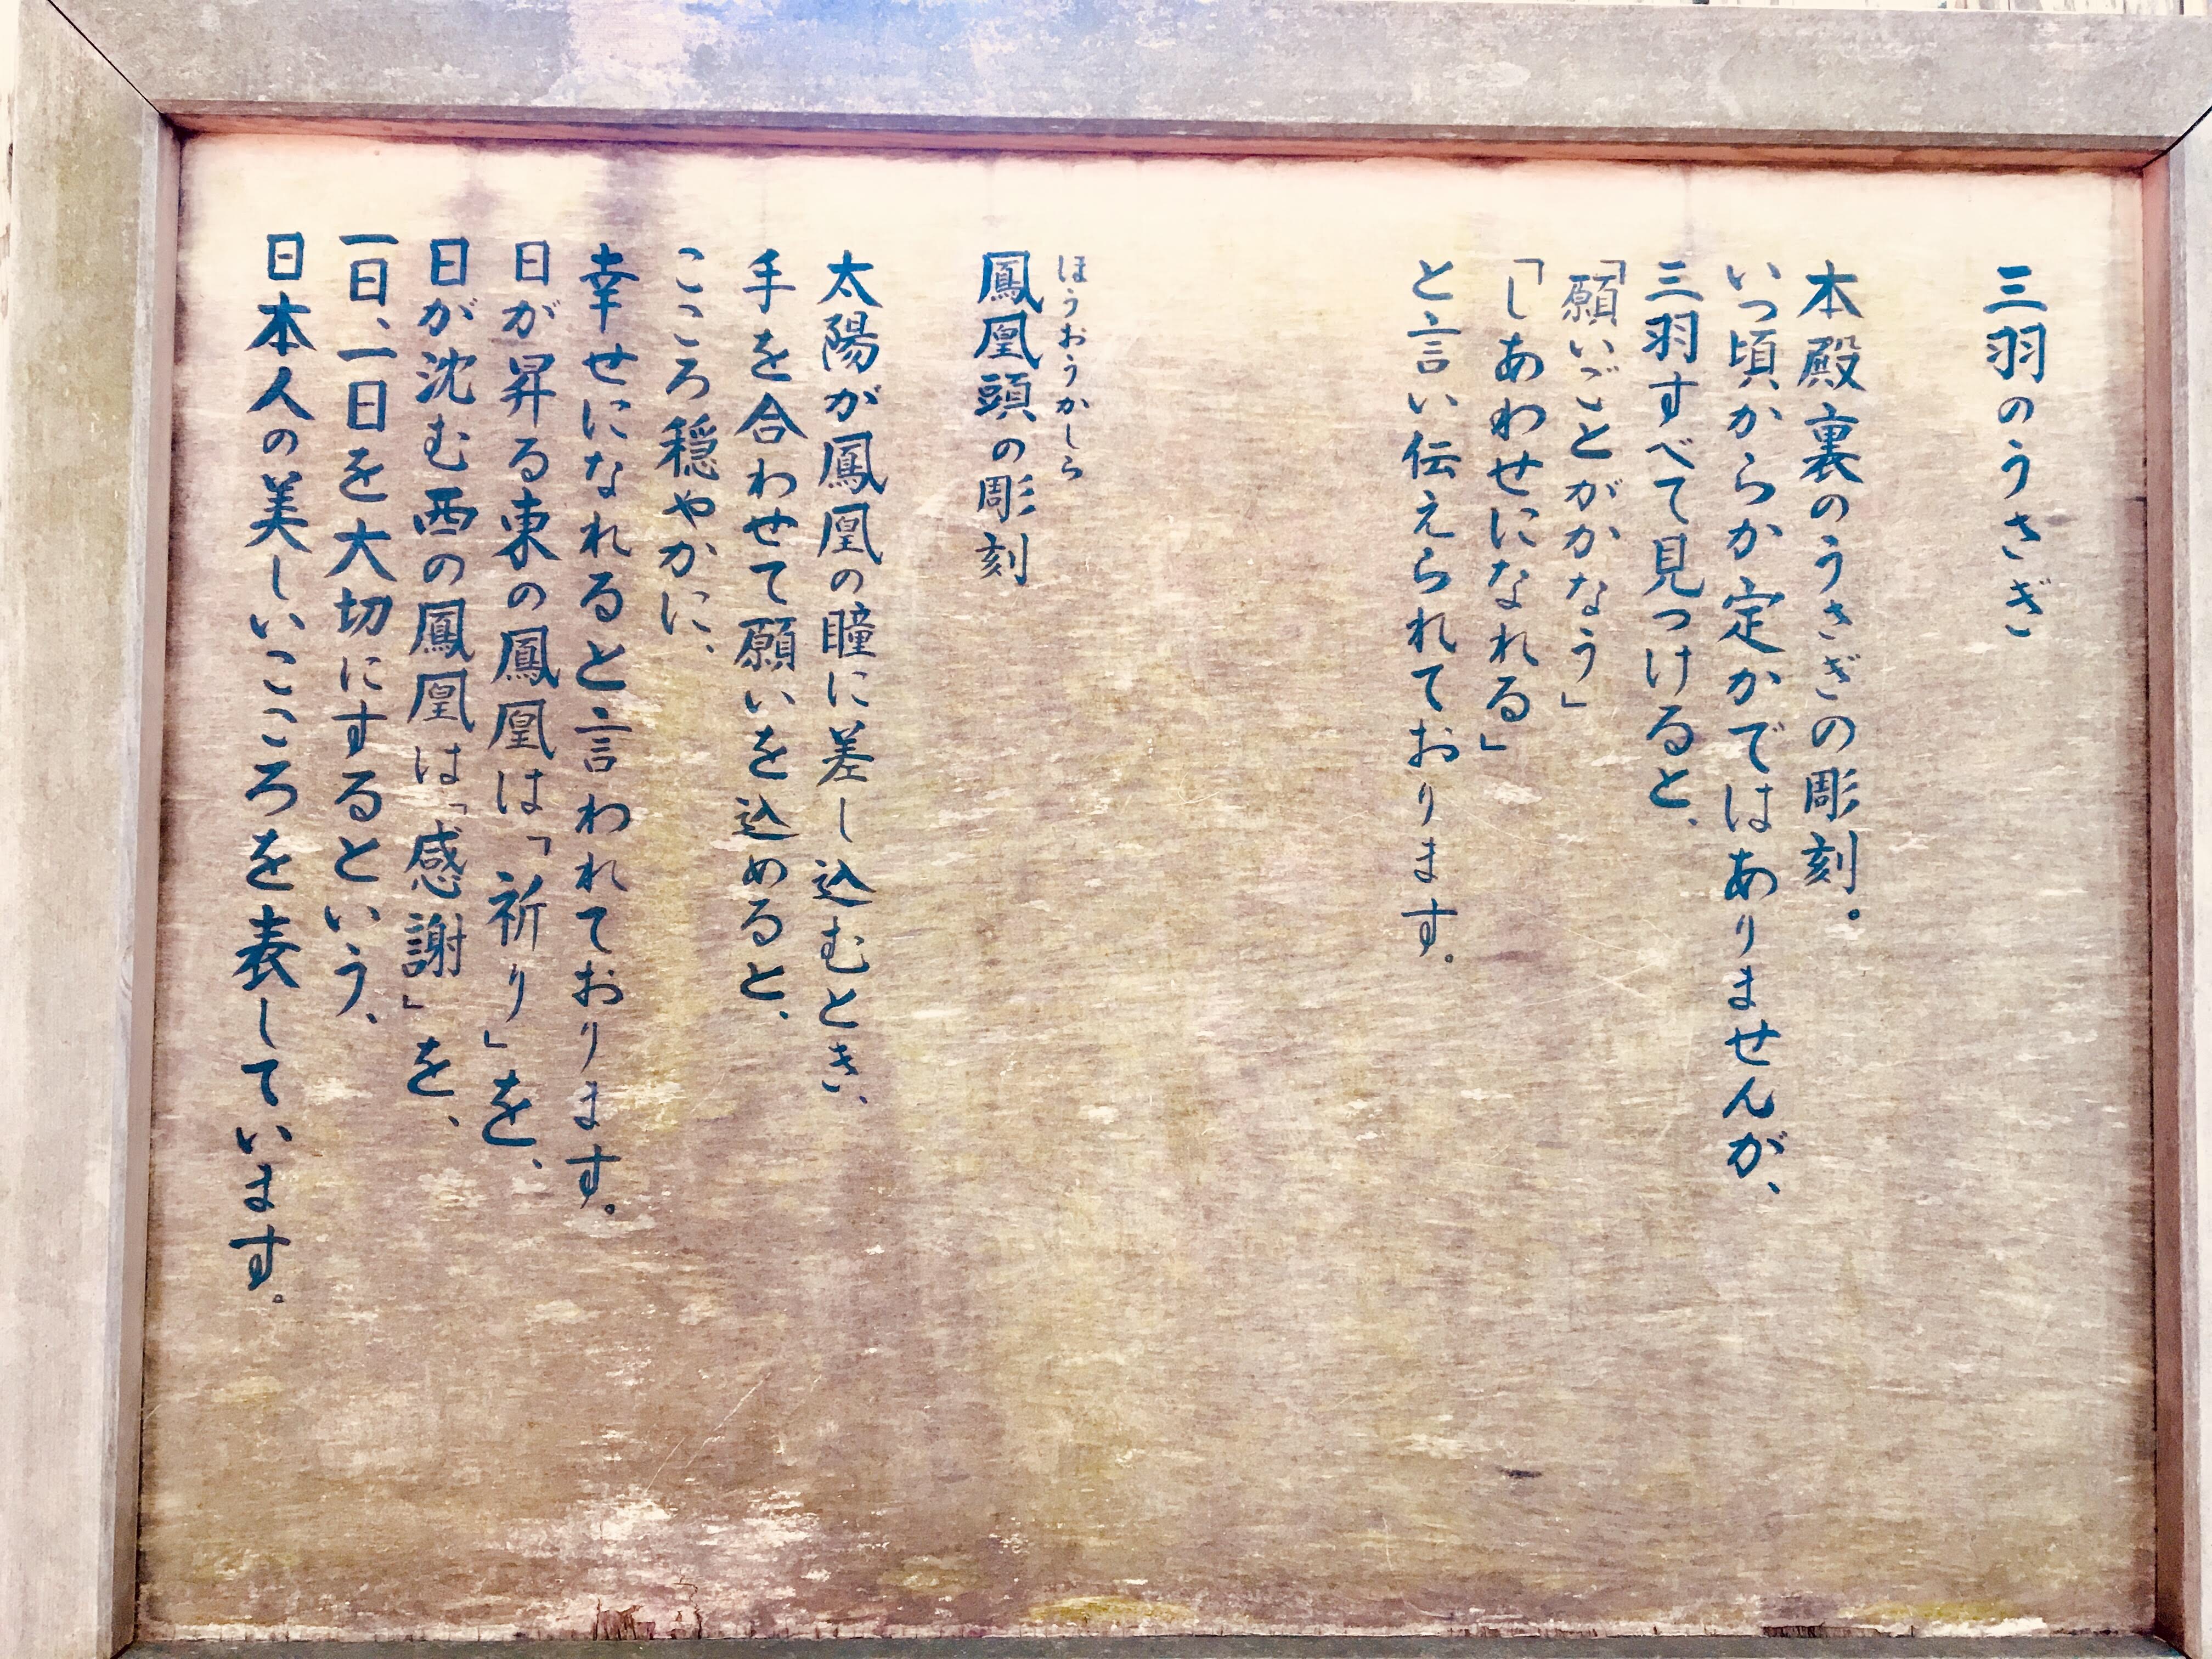 三羽のうさぎ
本殿裏のうさぎの彫刻。
いつ頃からか定かではありませんが、
三羽すべて見つけると、
「願いごとがかなう」
「しあわせになれる」
と言い伝えられております。
ほうおうかしら
鳳凰頭の彫刻
太陽が鳳凰の瞳に差し込むとき、
手を合わせて願いを込めると、
こころ穏やかに、
幸せになれると言われております。
日が昇る東の鳳凰は「祈り」を、
日が沈む西の鳳凰は「感謝」を、
一日、一日を大切にするという、
日本人の美しいこころを表しています。